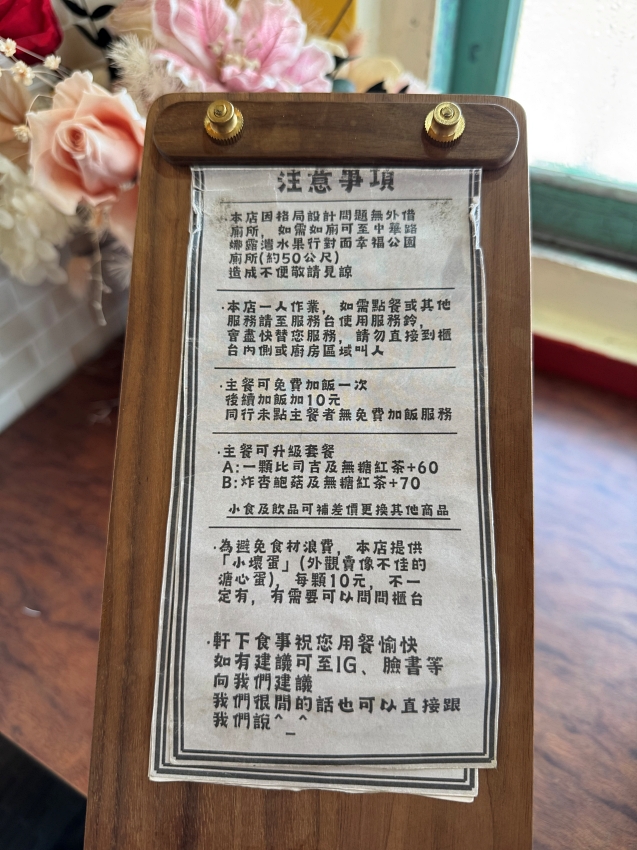 注意事項
·本店因格局設計問題無外借
廁所，如需如廁可至中華路
娜露灣水果行對面幸福公園
廁所(約50公尺)
造成不便敬請見諒
·本店一人作業，如需點餐或其他
服務請至服務台使用服務鈴，
會盡快替您服務，請勿直接到櫃
台內側或廚房區域叫人
·主餐可免費加飯一次
後續加飯加10元
同行未點主餐者無免費加飯服務
·主餐可升級套餐
A:一顆比司吉及無糖紅茶+60
B:炸杏鮑菇及無糖紅茶+70
小食及飲品可補差價更換其他商品
·為避免食材浪費，本店提供
「小壞蛋」(外觀賣像不佳的
溏心蛋)，每顆10元，不一
定有，有需要可以問問櫃台
·軒下食事祝您用餐愉快
如有建議可至IG、臉書等
向我們建議
我們很閒的話也可以直接跟
我們說^_^